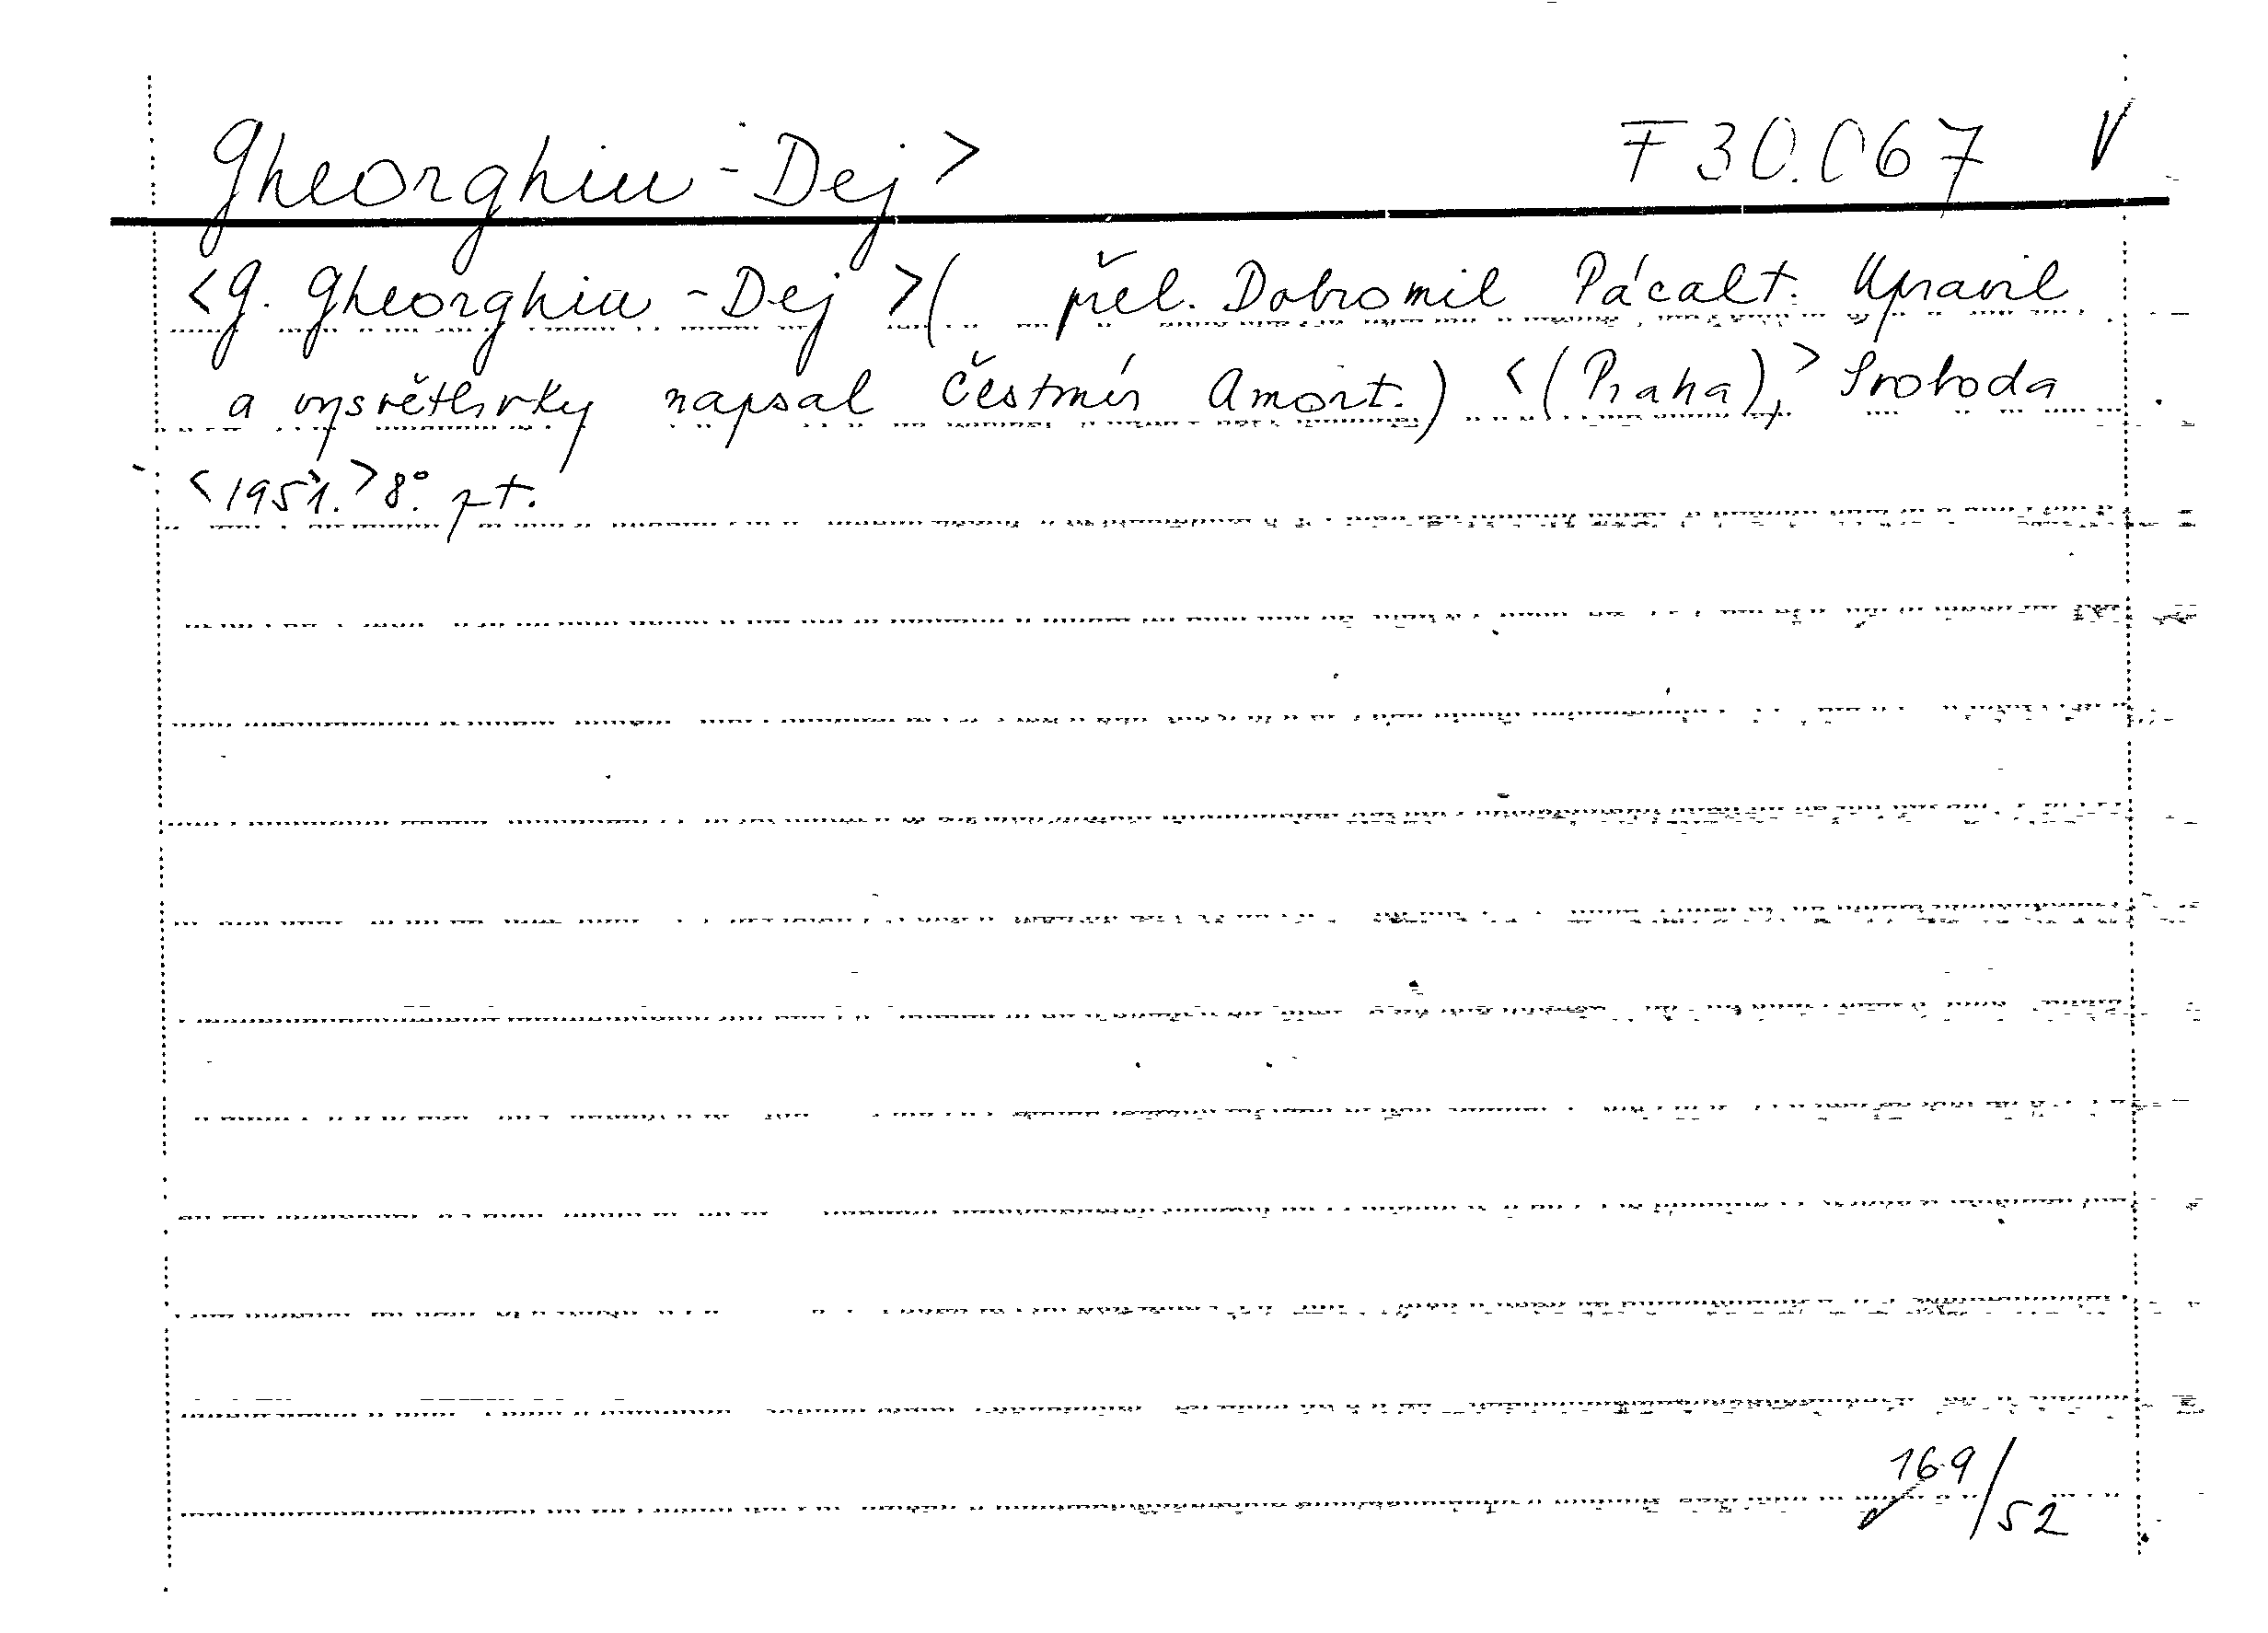 Gheorghiu-Dej> F 30.067 V
<G. Gheorghiu-Dej>( přel. Dobromil Pácalt. Upravil
a vysvětlivky napsal Čestmír Amort.) <(Praha),> Svoboda
<1951.> 8°. pt.
169/52